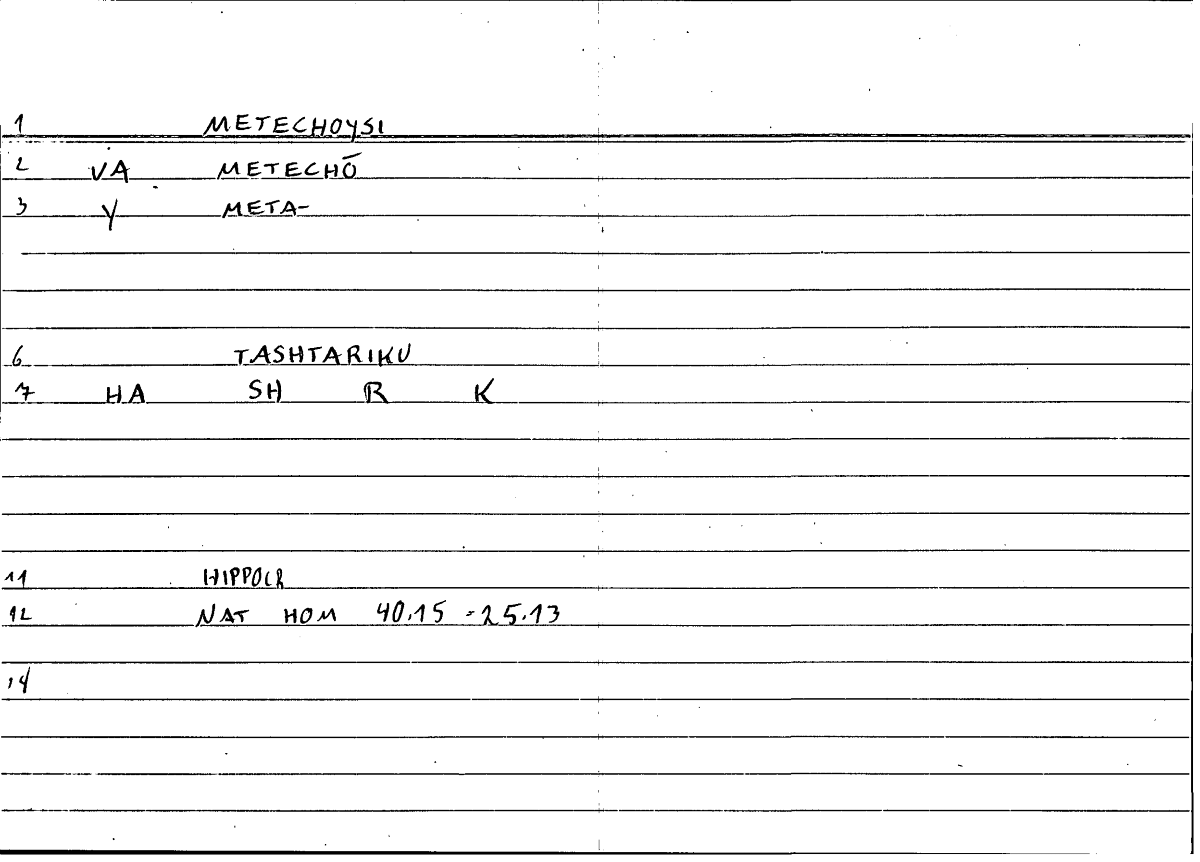 1 METECHOYSI
2 VA METECHŌ
3 Y META-
6 TASHTARIKU
7 HA SH R K
11 HIPPOCR
12 NAT HOM 40.15 = 25.13
14